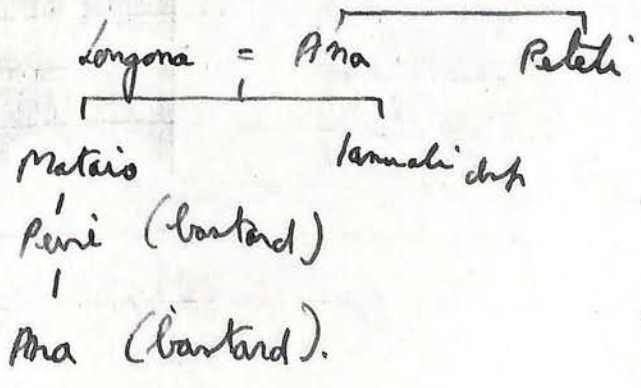 Longona = Ana Peleti
Mataio Iamuali dsp
Peni (bastard)
Ana (bastard).